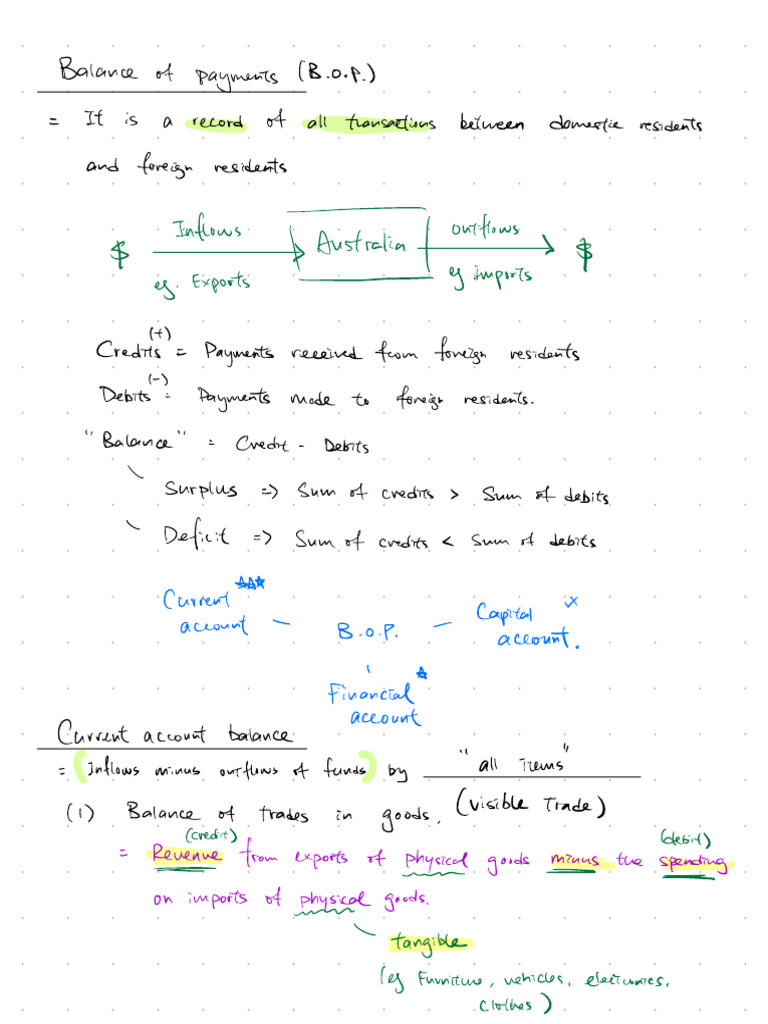 Balance of payments (B.O.P.)
= It is a record of all transactions between domestic residents
and foreign residents
Inflows
outflows
$ Australia $
eg. Exports
eg imports
(+)
Credits = Payments received from foreign residents
(-)
Debits = Payments made to foreign residents.
"Balance" = Credit - Debits
Surplus => Sum of credits > Sum of debits
Deficit => Sum of credits < Sum of debits
Current
account
B.O.P.
Capital x
account.
Financial
account
Current account balance
= (Inflows minus outflows of funds) by "all items"
(1) Balance of trades in goods. (visible Trade)
(credit) (debit)
= Revenue from exports of physical goods minus the spending
on imports of physical goods.
tangible
(eg Furniture, vehicles, electronics,
clothes)